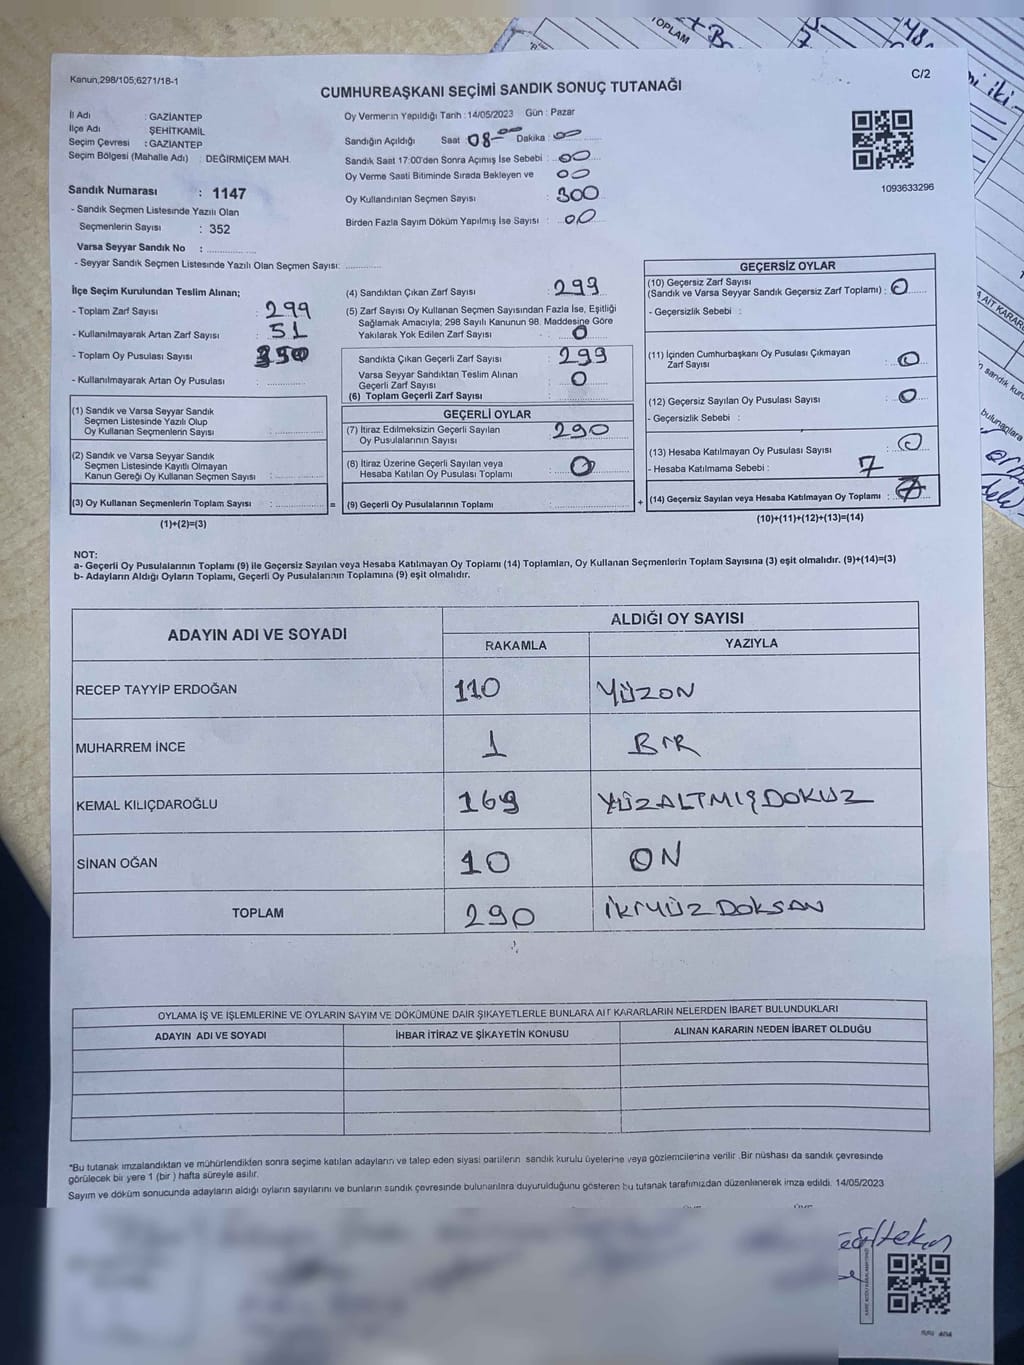 Kanun,298/105,6271/18-1
C/2
CUMHURBAŞKANI SEÇİMİ SANDIK SONUÇ TUTANAĞI
İl Adı : GAZİANTEP
İlçe Adı ŞEHİTKAMİL
Seçim Çevresi : GAZİANTEP
Seçim Bölgesi (Mahalle Adı) : DEĞİRMİÇEM MAH.
Oy Vermenin Yapıldığı Tarih : 14/05/2023 Gün : Pazar
Sandığın Açıldığı Saat 08-00 Dakika : 00
Sandık Saat 17:00'den Sonra Açımış İse Sebebi : 00
Oy Verme Saati Bitiminde Sırada Bekleyen ve 00
Oy Kullandırılan Seçmen Sayısı 300
Birden Fazla Sayım Döküm Yapılmış İse Sayısı : 00
1093633296
Sandık Numarası : 1147
- Sandık Seçmen Listesinde Yazılı Olan
Seçmenlerin Sayısı : 352
Varsa Seyyar Sandık No :
- Seyyar Sandık Seçmen Listesinde Yazılı Olan Seçmen Sayısı:
İlçe Seçim Kurulundan Teslim Alınan;
- Toplam Zarf Sayısı : 299
- Kullanılmayarak Artan Zarf Sayısı : 51
- Toplam Oy Pusulası Sayısı : 350
- Kullanılmayarak Artan Oy Pusulası :
(1) Sandık ve Varsa Seyyar Sandık
Seçmen Listesinde Yazılı Olup
Oy Kullanan Seçmenlerin Sayısı :
(2) Sandık ve Varsa Seyyar Sandık
Seçmen Listesinde Kayıtlı Olmayan
Kanun Gereği Oy Kullanan Seçmen Sayısı :
(3) Oy Kullanan Seçmenlerin Toplam Sayısı : =
(1)+(2)=(3)
(4) Sandıktan Çıkan Zarf Sayısı : 299
(5) Zarf Sayısı Oy Kullanan Seçmen Sayısından Fazla İse, Eşitliği
Sağlamak Amacıyla; 298 Sayılı Kanunun 98. Maddesine Göre
Yakılarak Yok Edilen Zarf Sayısı : 0
Sandıkta Çıkan Geçerli Zarf Sayısı : 299
Varsa Seyyar Sandıktan Teslim Alınan
Geçerli Zarf Sayısı : 0
(6) Toplam Geçerli Zarf Sayısı :
GEÇERLİ OYLAR
(7) İtiraz Edilmeksizin Geçerli Sayılan
Oy Pusulalarının Sayısı : 290
(8) İtiraz Üzerine Geçerli Sayılan veya
Hesaba Katılan Oy Pusulası Toplamı : 0
(9) Geçerli Oy Pusulalarının Toplamı : +
GEÇERSİZ OYLAR
(10) Geçersiz Zarf Sayısı
(Sandık ve Varsa Seyyar Sandık Geçersiz Zarf Toplamı) : 0
- Geçersizlik Sebebi :
(11) İçinden Cumhurbaşkanı Oy Pusulası Çıkmayan
Zarf Sayısı : 0
(12) Geçersiz Sayılan Oy Pusulası Sayısı : 0
- Geçersizlik Sebebi :
(13) Hesaba Katılmayan Oy Pusulası Sayısı : 0
- Hesaba Katılmama Sebebi : 7
(14) Geçersiz Sayılan veya Hesaba Katılmayan Oy Toplamı : 7
(10)+(11)+(12)+(13)=(14)
NOT:
a- Geçerli Oy Pusulalarının Toplamı (9) ile Geçersiz Sayılan veya Hesaba Katılmayan Oy Toplamı (14) Toplamları, Oy Kullanan Seçmenlerin Toplam Sayısına (3) eşit olmalıdır. (9)+(14)=(3)
b- Adayların Aldığı Oyların Toplamı, Geçerli Oy Pusulalarının Toplamına (9) eşit olmalıdır.
ADAYIN ADI VE SOYADI
ALDIĞI OY SAYISI
RAKAMLA YAZIYLA
RECEP TAYYİP ERDOĞAN 110 YÜZON
MUHARREM İNCE 1 BİR
KEMAL KILIÇDAROĞLU 169 YÜZALTMIŞDOKUZ
SİNAN OĞAN 10 ON
TOPLAM 290 İKİYÜZDOKSAN
OYLAMA İŞ VE İŞLEMLERİNE VE OYLARIN SAYIM VE DÖKÜMÜNE DAİR ŞİKAYETLERLE BUNLARA AİT KARARLARIN NELERDEN İBARET BULUNDUKLARI
ADAYIN ADI VE SOYADI İHBAR İTİRAZ VE ŞİKAYETİN KONUSU ALINAN KARARIN NEDEN İBARET OLDUĞU
*Bu tutanak imzalandıktan ve mühürlendikten sonra seçime katılan adayların ve talep eden siyasi partilerin sandık kurulu üyelerine veya gözlemcilerine verilir .Bir nüshası da sandık çevresinde
görülecek bir yere 1 (bir ) hafta süreyle asılır.
Sayım ve döküm sonucunda adayların aldığı oyların sayılarını ve bunların sandık çevresinde bulunanlara duyurulduğunu gösteren bu tutanak tarafımızdan düzenlenerek imza edildi. 14/05/2023
TOPLAM
48
iki
AİT KARAR
n sandık kuru
bulunanlara